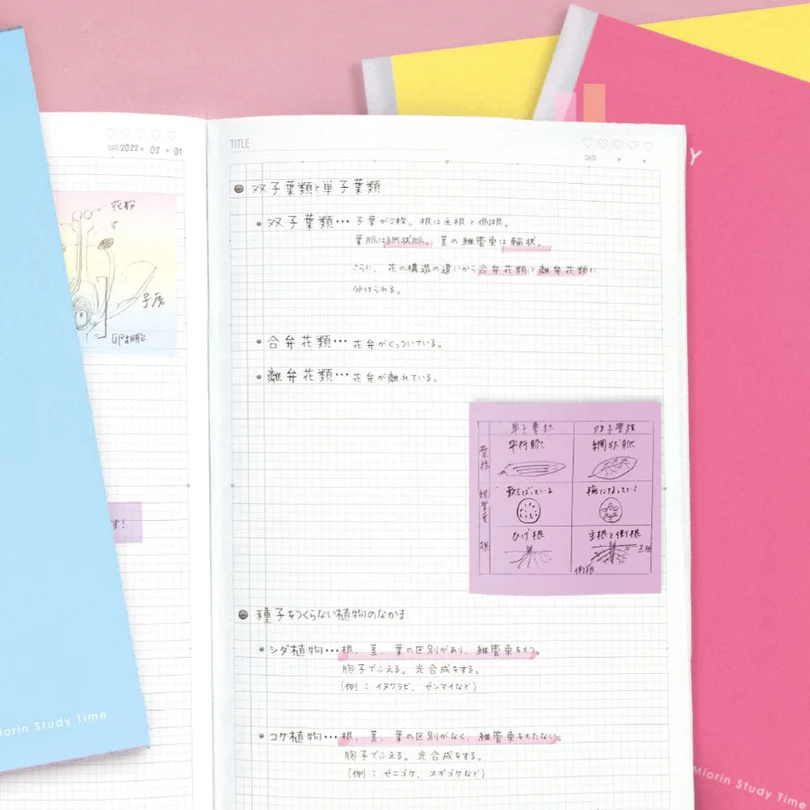 DATE 2022 02 01
花粉
子房
卵細胞
す!
TITLE
DATE
双子葉類と単子葉類
双子葉類…子葉が2枚。根は主根と側根。
葉脈は網状脈。茎の維管束は輪状。
さらに、花の構造の違いから合弁花類と離弁花類に
分けられる。
合弁花類…花弁がくっついている。
離弁花類…花弁が離れている。
単子葉類 双子葉類
葉脈 平行脈 網状脈
維管束 散らばっている 輪になっている
根 ひげ根 主根と側根
主根
側根
種子をつくらない植物のなかま
シダ植物…根、茎、葉の区別があり、維管束をもつ。
胞子でふえる。光合成をする。
(例:イヌワラビ、ゼンマイなど)
コケ植物…根、茎、葉の区別がなく、維管束をもたない。
胞子でふえる。光合成をする。
(例:ゼニゴケ、スギゴケなど)
lorin Study Time
Y
Mlorin Study Time